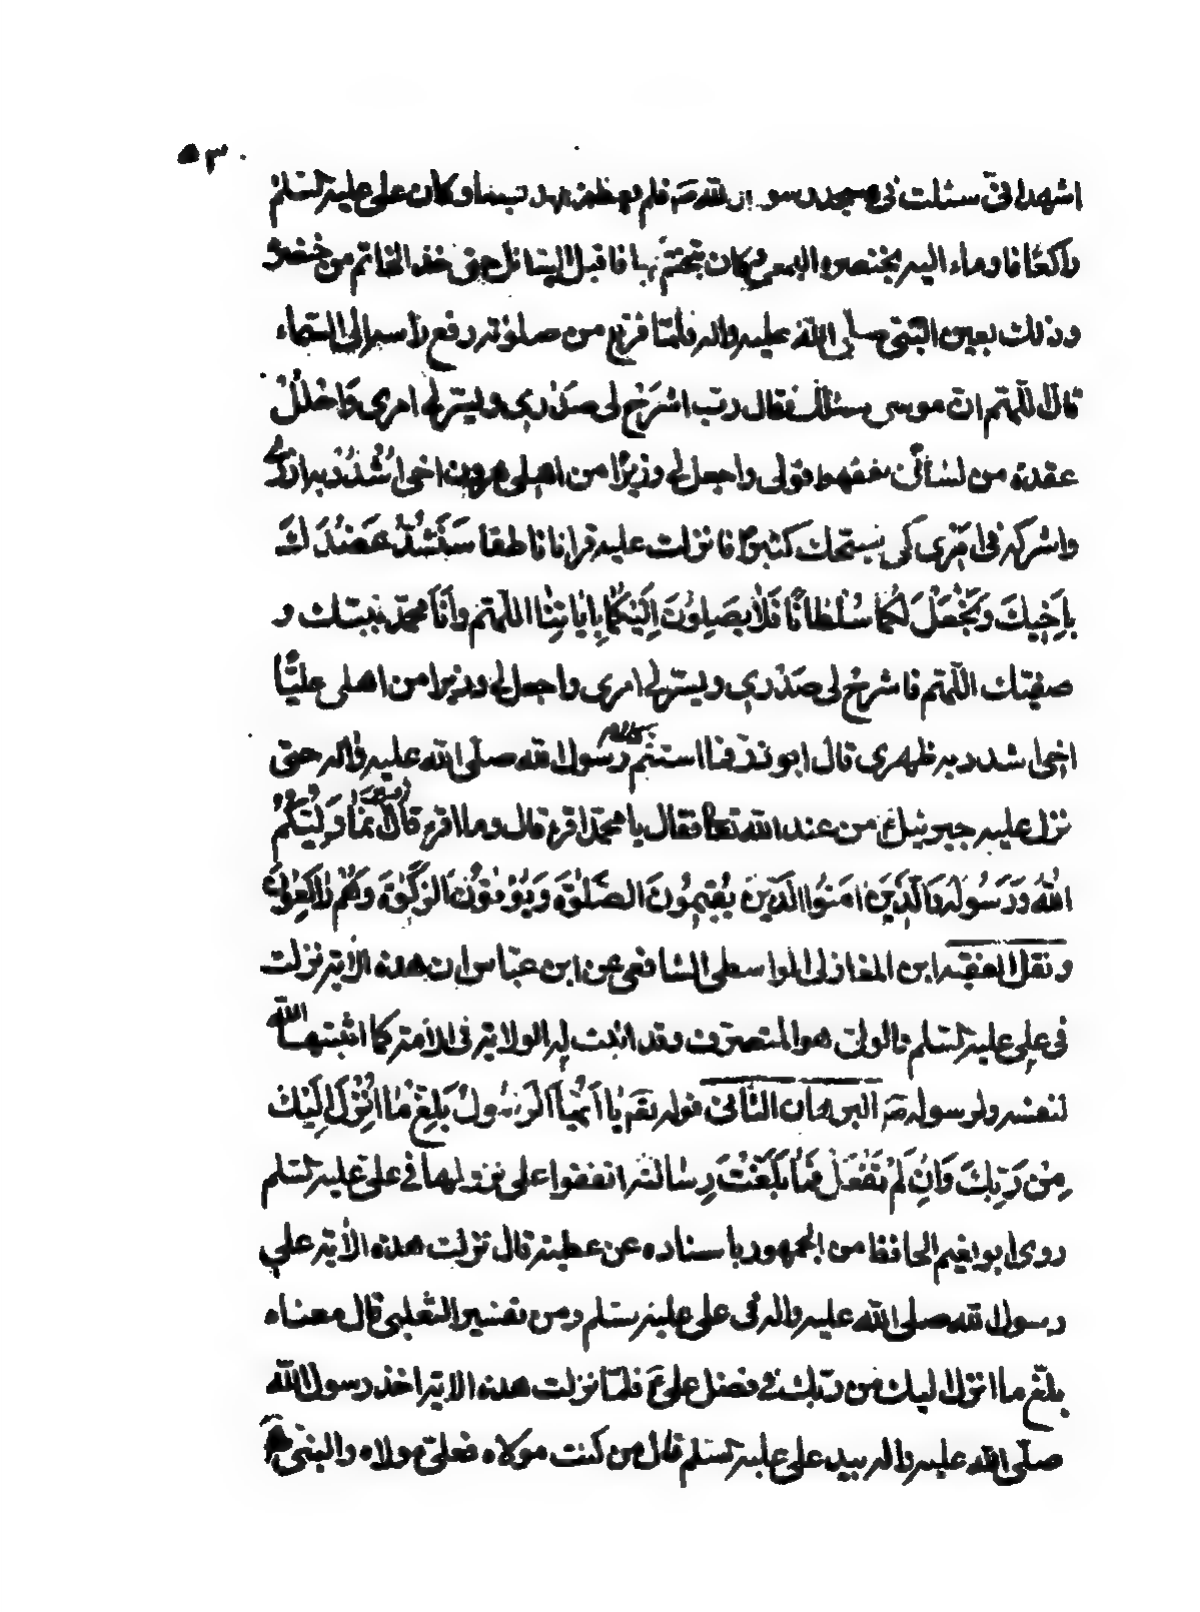 ٥٣
اشهد انى سئلت فى مسجد رسول الله صم فلم يعطنى احد شيئا وكان على عليه السلم
راكعا فاوماء اليه بخنصره اليمنى وكان يتختم بها فاقبل السائل حتى اخذ الخاتم من خنصره
وذلك بعين النبى صلى الله عليه واله فلما فرغ من صلوته رفع راسه الى السماء
قال اللهم ان موسى سئلك فقال رب اشرح لى صدرى ويسر لى امرى واحلل
عقدة من لسانى يفقهوا قولى واجعل لى وزيرا من اهلى هرون اخى اشدد به ازرى
واشركه فى امرى كى نسبحك كثيرا فانزلت عليه قرانا ناطقا سنشد عضدك
باخيك ونجعل لكما سلطانا فلا يصلون اليكما باياتنا اللهم وانا محمد نبيك و
صفيك اللهم فاشرح لى صدرى ويسر لى امرى واجعل لى وزيرا من اهلى عليا
اخى اشدد به ظهرى قال ابوذر فما استتم رسول الله صلى الله عليه واله حتى
نزل عليه جبرئيل من عند الله تعا فقال يا محمد اقرء قال وما اقرء قال انما وليكم
الله ورسوله والذين امنوا الذين يقيمون الصلوة ويؤتون الزكوة وهم راكعون
ونقل الفقيه ابن المغازلى الواسطى الشافعى عن ابن عباس ان هذه الاية نزلت
فى على عليه السلم والولى هو المتصرف وقد اثبت له الولاية فى الامة كما اثبتها الله
لنفسه ولرسوله صم البرهان الثانى قوله تعم يا ايها الرسول بلغ ما انزل اليك
من ربك وان لم تفعل فما بلغت رسالته اتفقوا على نزولها فى على عليه السلم
روى ابو نعيم الحافظ من الجمهور باسناده عن عطية قال نزلت هذه الاية على
رسول الله صلى الله عليه واله فى على عليه سلم ومن تفسير الثعلبى قال معناه
بلغ ما انزل اليك من ربك فى فضل على ع فلما نزلت هذه الاية اخذ رسول الله
صلى الله عليه واله بيد على عليه السلم قال من كنت مولاه فعلى مولاه والنبى